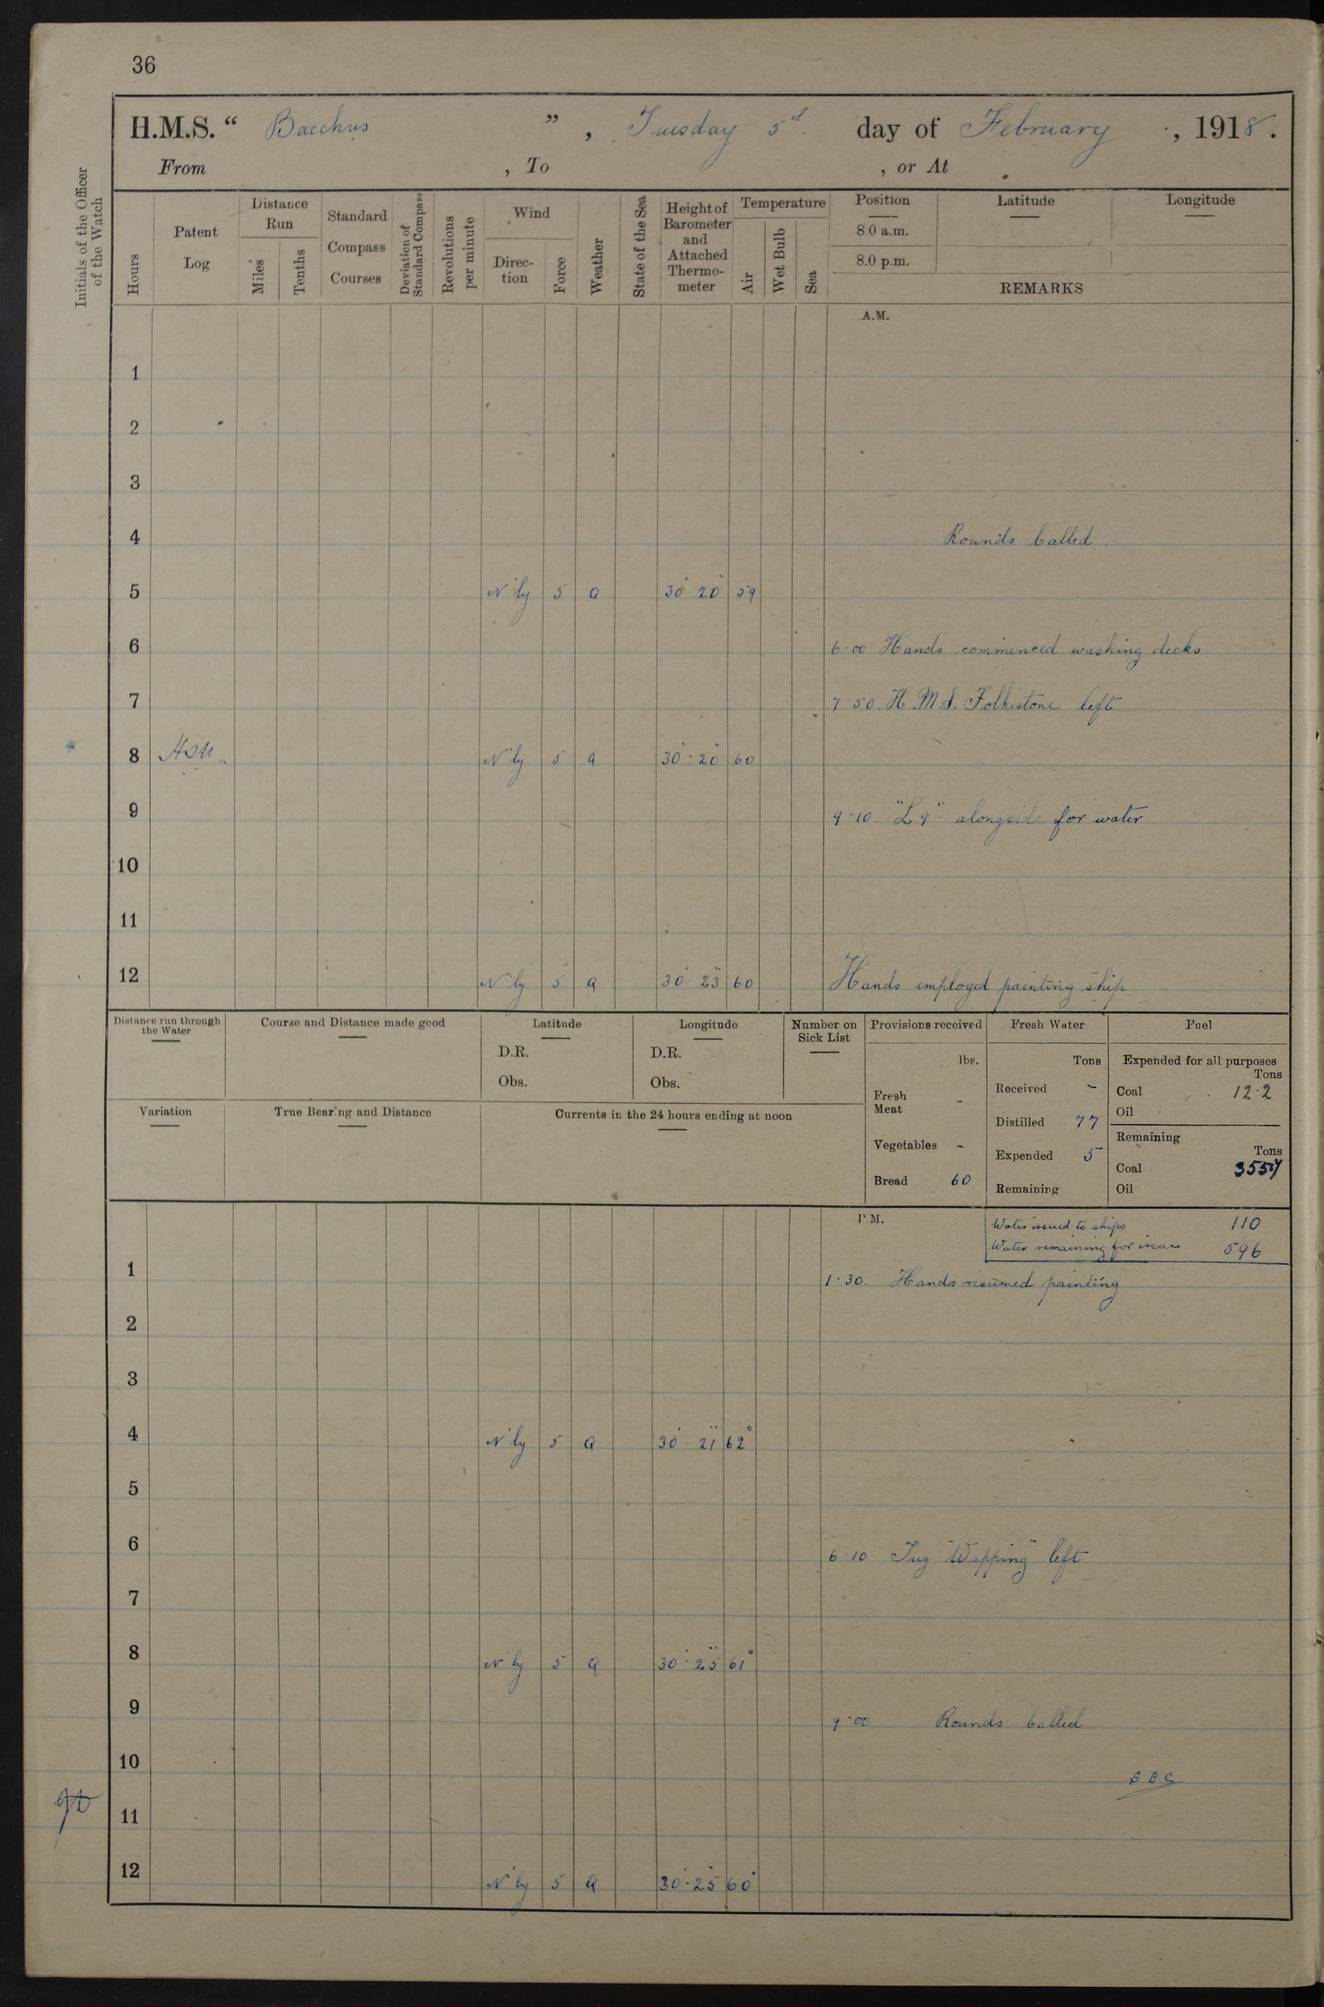 36
H.M.S. “ Bacchus ” , Tuesday 5th day of February , 1918.
From , To , or At
Initials of the Officer of the Watch
Hours
Patent Log
Distance Run
Miles
Tenths
Standard Compass Courses
Deviation of Standard Compass
Revolutions per minute
Wind
Direc-tion
Force
Weather
State of the Sea
Height of Barometer and Attached Thermo-meter
Temperature
Air
Wet Bulb
Sea
Position
8.0 a.m.
8.0 p.m.
Latitude
Longitude
REMARKS
A.M.
1
2
3
4 Rounds Called.
5 N'ly 5 a 30 20 59
6 6.00 Hands commenced washing decks
7 7.50. H.M.S. Folkestone left
8 N'ly 5 a 30.20 60
9 9.10 "L9" alongside for water
10
11
12 N'ly 5 a 30 23 60 Hands employed painting ship
Distance run through the Water
Course and Distance made good
Latitude
D.R.
Obs.
Longitude
D.R.
Obs.
Number on Sick List
Provisions received
lbs.
Fresh Meat -
Vegetables -
Bread 60
Fresh Water
Tons
Received -
Distilled 77
Expended 5
Remaining
Fuel
Expended for all purposes
Tons
Coal 12.2
Oil
Remaining
Tons
Coal
Oil
Variation
True Bearing and Distance
Currents in the 24 hours ending at noon
P.M.
Water issued to ships 110
Water remaining for issue 596
1 1.30 Hands resumed painting
2
3
4 N'ly 5 a 30 21 62°
5
6 6.10 Tug "Wapping" left
7
8 N'ly 5 a 30.25 61°
9 9.00 Rounds Called
10
11
12 N'ly 5 a 30.25 60°